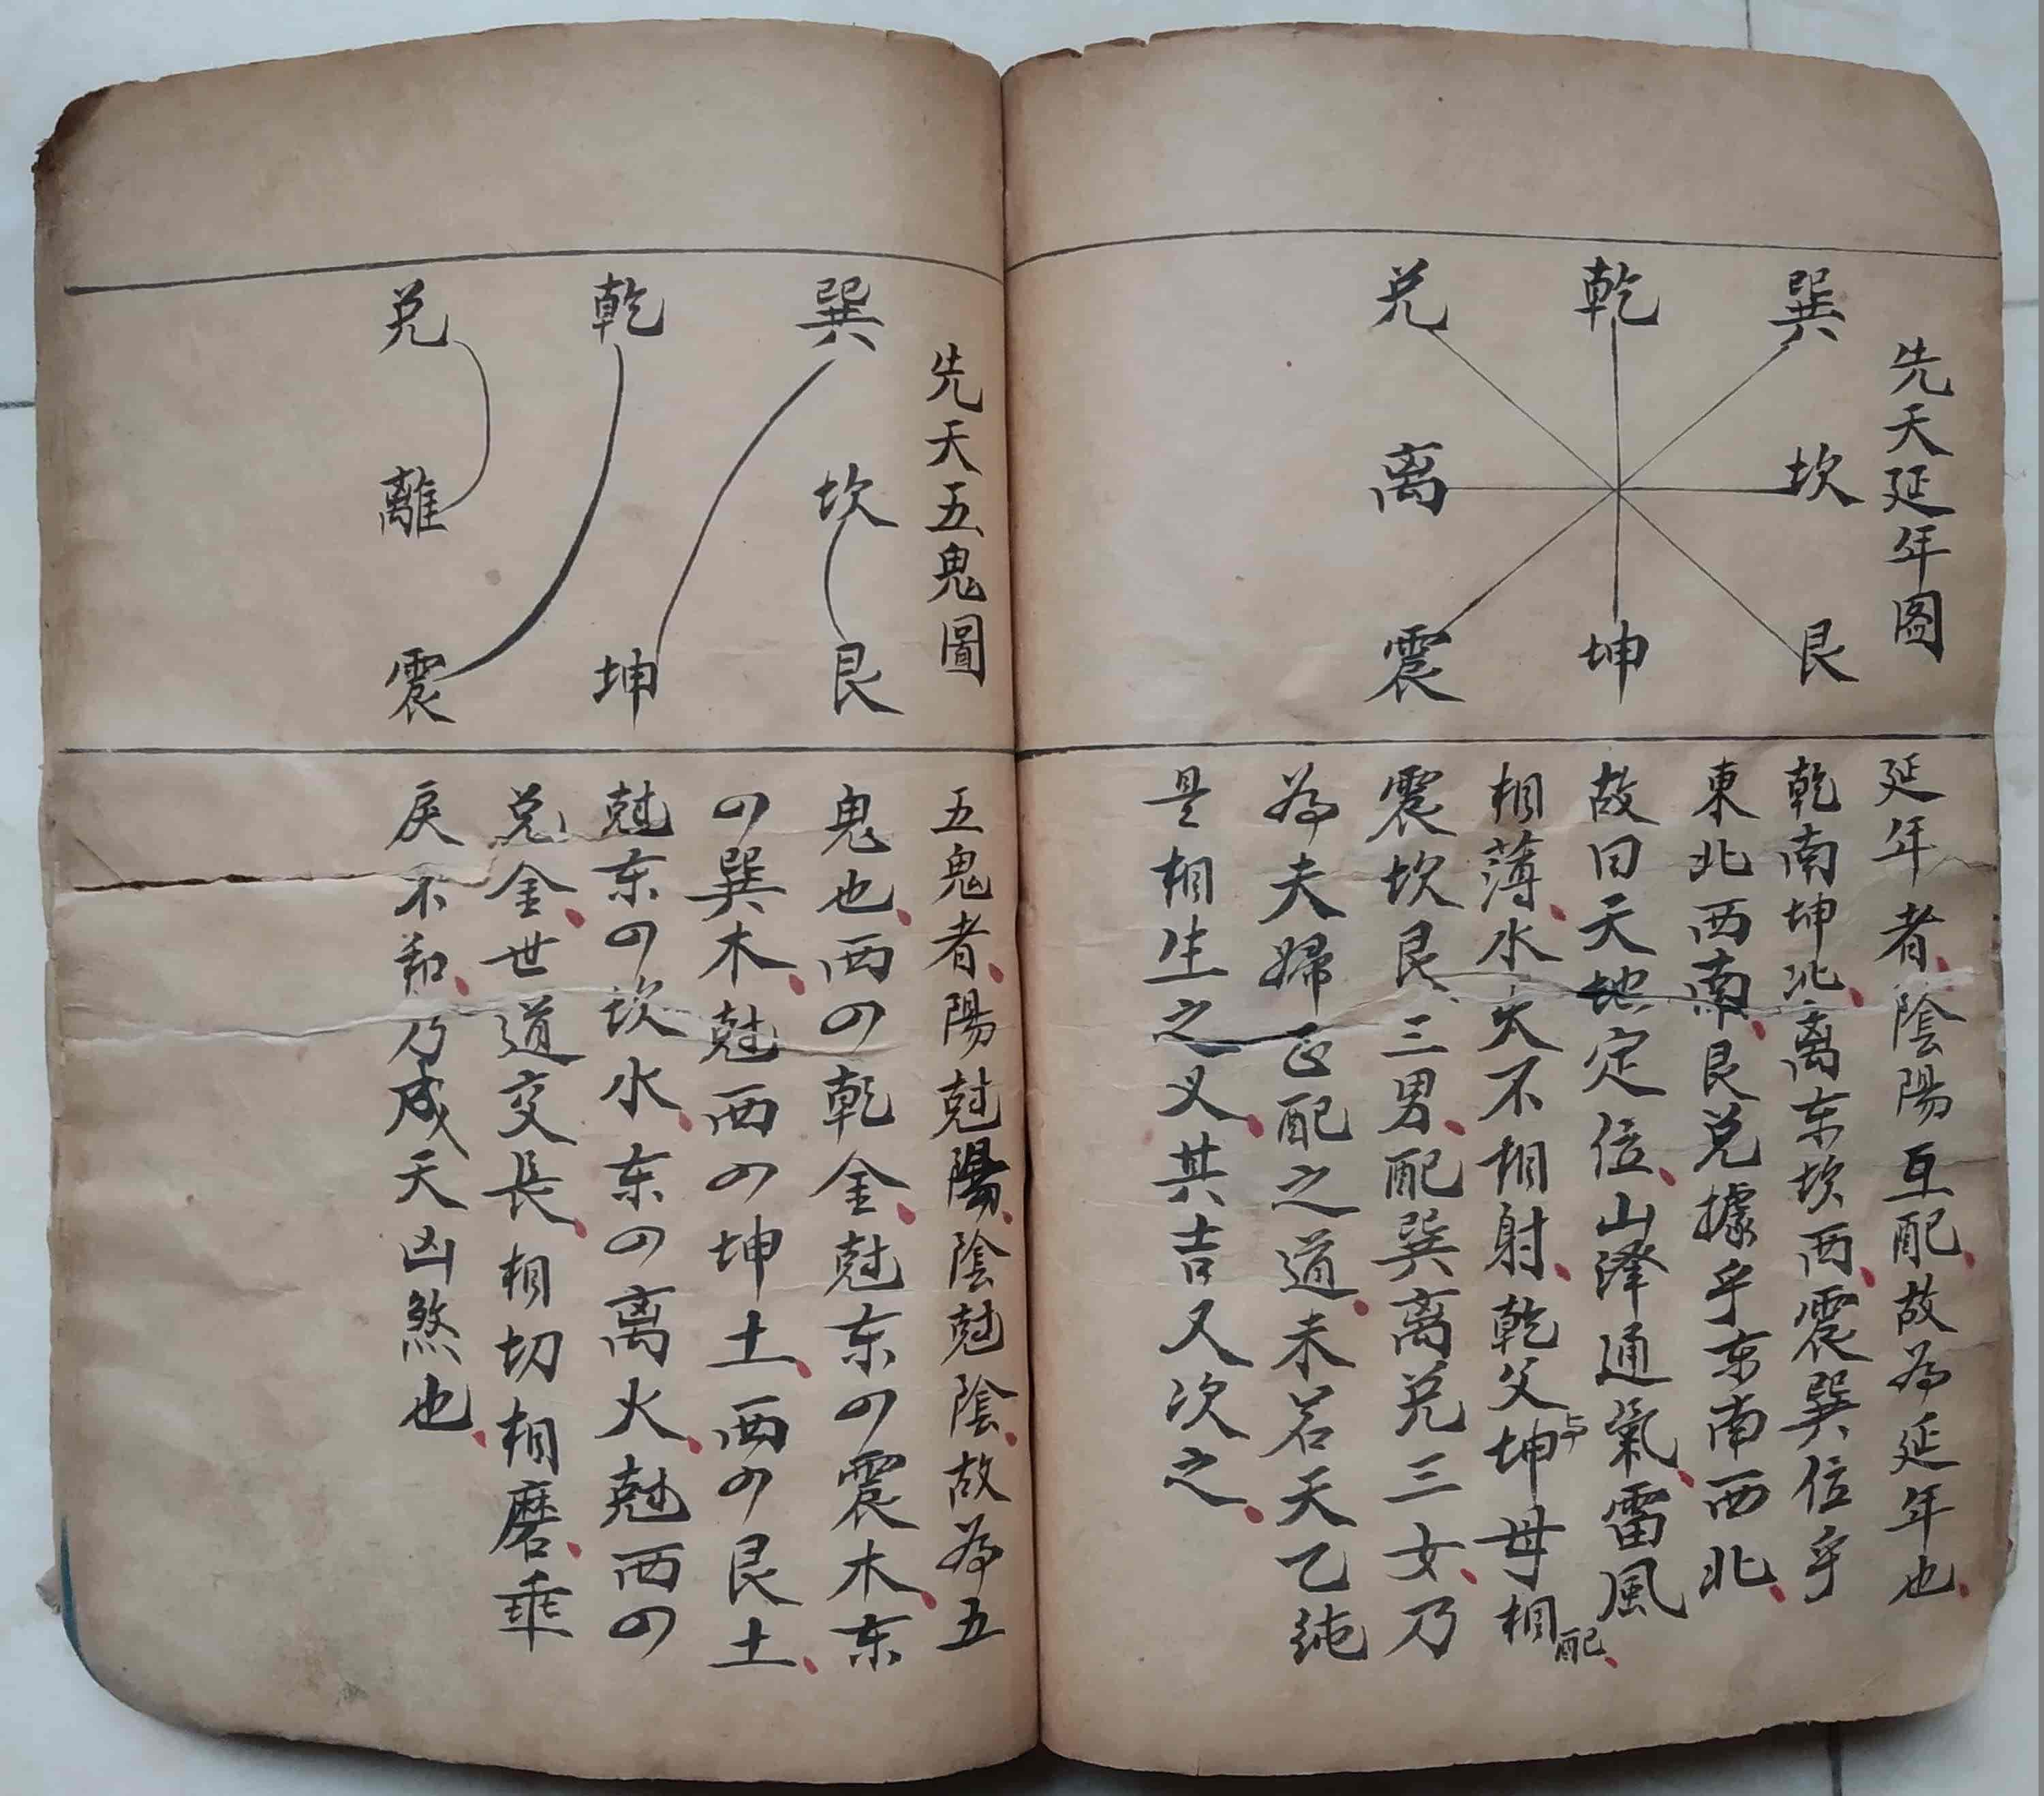 先天延年图
巽 坎 艮
乾 坤
兑 离 震
延年者、陰陽互配、故為延年也、
乾南坤北、离东坎西、震巽位乎
東北西南、艮兑據乎东南西北、
故曰天地定位、山澤通氣、雷風
相薄、水火不相射、乾父与坤母相配、
震坎艮、三男、配巽离兑三女、乃
為夫婦正配之道、未若天乙純
是相生之义、其吉又次之、
先天五鬼圖
巽 坎 艮
乾 坤
兑 離 震
五鬼者、陽尅陽、陰尅陰、故為五
鬼也、西四乾金、尅东四震木、东
四巽木、尅西四坤土、西四艮土、
尅东四坎水、东四离火、尅西四
兑金、世道交長、相切相磨、乖
戾不和、乃成天凶煞也、